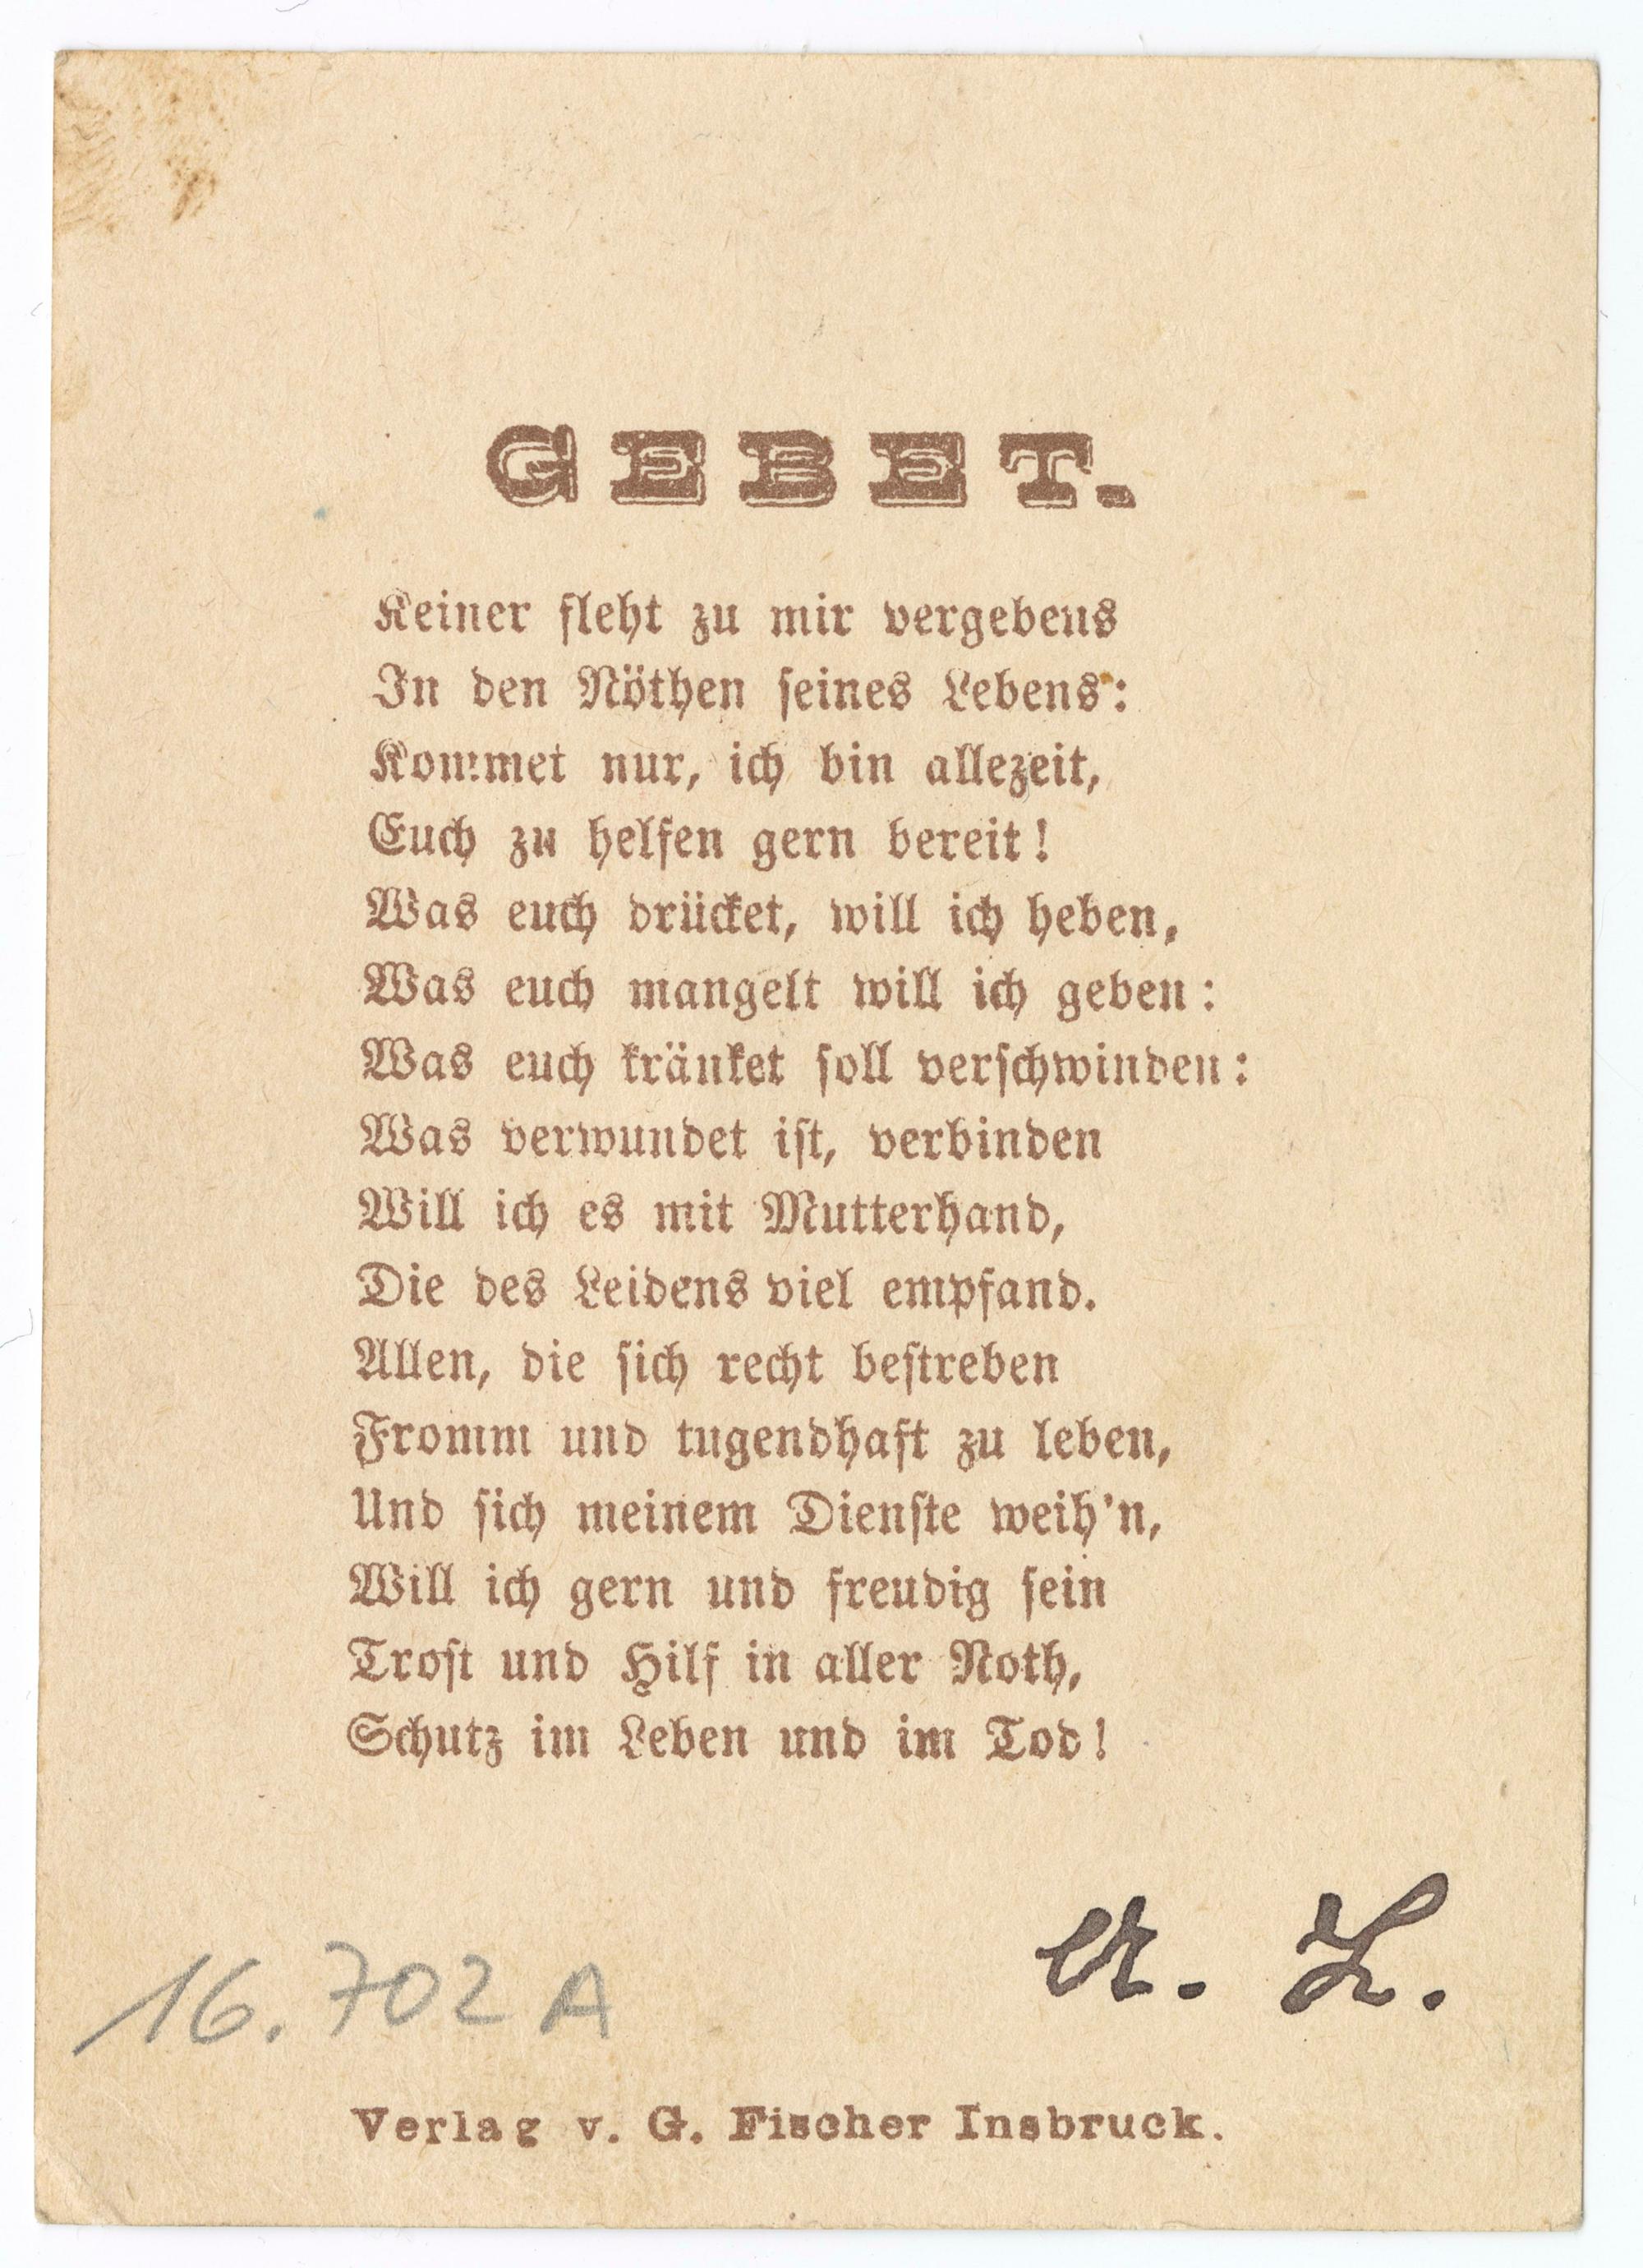 GEBET.
Keiner fleht zu mir vergebens
In den Nöthen seines Lebens:
Kommet nur, ich bin allezeit,
Euch zu helfen gern bereit!
Was euch drücket, will ich heben,
Was euch mangelt will ich geben:
Was euch kränket soll verschwinden:
Was verwundet ist, verbinden
Will ich es mit Mutterhand,
Die des Leidens viel empfand.
Allen, die sich recht bestreben
Fromm und tugendhaft zu leben,
Und sich meinem Dienste weih'n,
Will ich gern und freudig sein
Trost und Hilf in aller Noth,
Schutz im Leben und im Tod!
16.702 A
Verlag v. G. Fischer Insbruck.